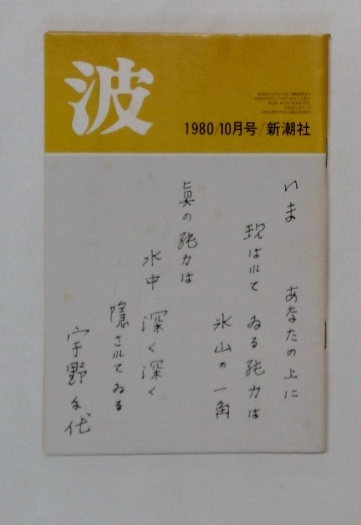 波
1980/10月号/新潮社
いま　あなたの上に
現はれてゐる能力は
氷山の一角
真の能力は
水中深く深く
隠されてゐる
宇野千代